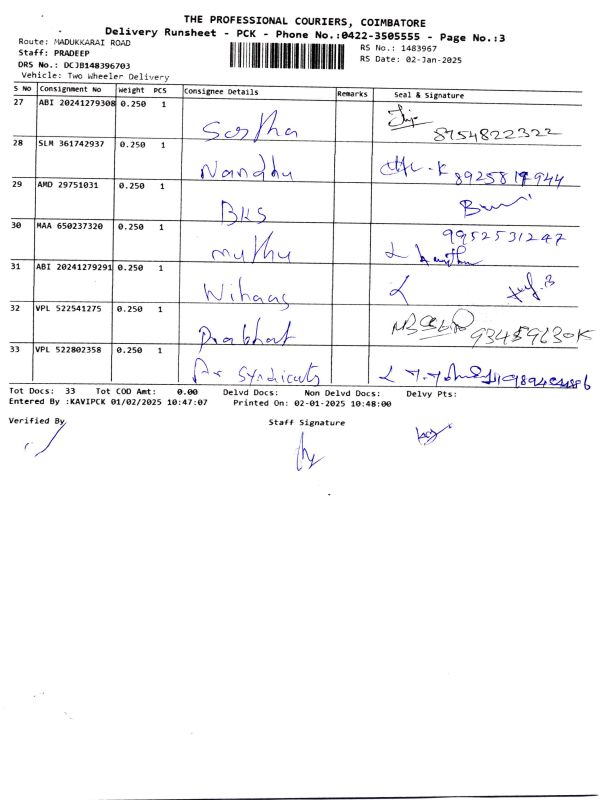 THE PROFESSIONAL COURIERS, COIMBATORE
Delivery Runsheet - PCK - Phone No.:0422-3505555 - Page No.:3
Route: MADUKKARAI ROAD
RS No.: 1483967
Staff: PRADEEP
RS Date: 02-Jan-2025
DRS No.: DCJB148396703
Vehicle: Two Wheeler Delivery
S No Consignment No Weight PCS Consignee Details Remarks Seal & Signature
27 ABI 20241279308 0.250 1 Sastha 8754822322
28 SLM 361742937 0.250 1 Nandhu
29 AMD 29751031 0.250 1 BKS
30 MAA 650237320 0.250 1 muthu 9952531247
31 ABI 20241279291 0.250 1 Nihaas
32 VPL 522541275 0.250 1 Prabhat
33 VPL 522802358 0.250 1 Syndicate
Tot Docs: 33 Tot COD Amt: 0.00 Delvd Docs: Non Delvd Docs: Delvy Pts:
Entered By :KAVIPCK 01/02/2025 10:47:07 Printed On: 02-01-2025 10:48:00
Verified By Staff Signature